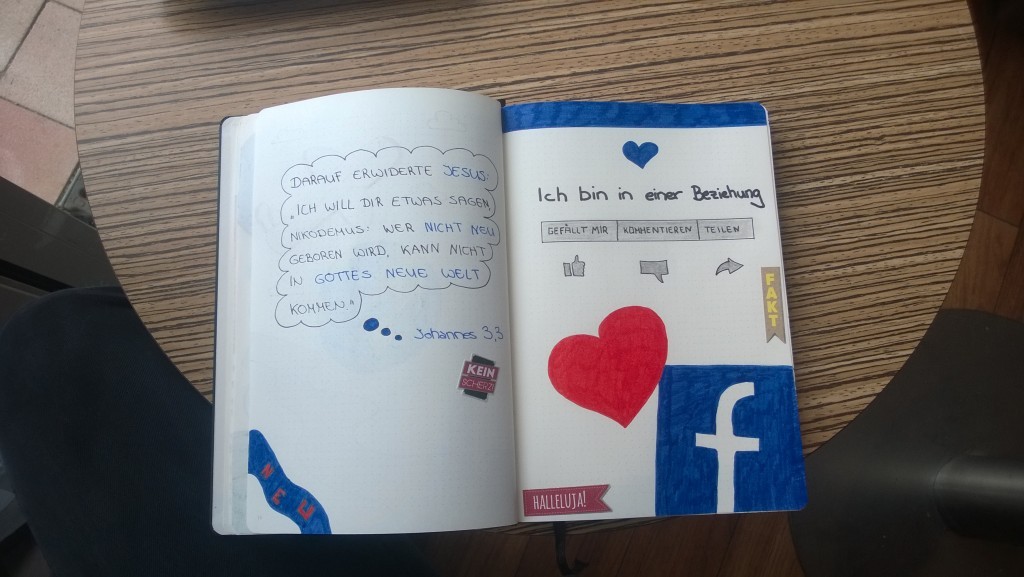 DARAUF ERWIDERTE JESUS:
„ICH WILL DIR ETWAS SAGEN,
NIKODEMUS: WER NICHT NEU
GEBOREN WIRD, KANN NICHT
IN GOTTES NEUE WELT
KOMMEN."
Johannes 3,3
KEIN
SCHERZ!
NEU
Ich bin in einer Beziehung
GEFÄLLT MIR KOMMENTIEREN TEILEN
FAKT
f
HALLELUJA!